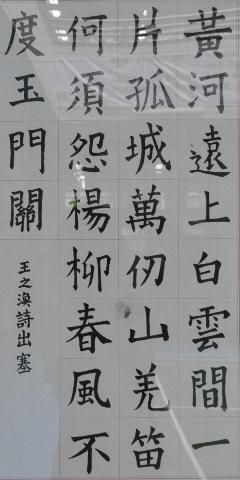 黃河遠上白雲間一
片孤城萬仞山羌笛
何須怨楊柳春風不
度玉門關
王之渙詩出塞